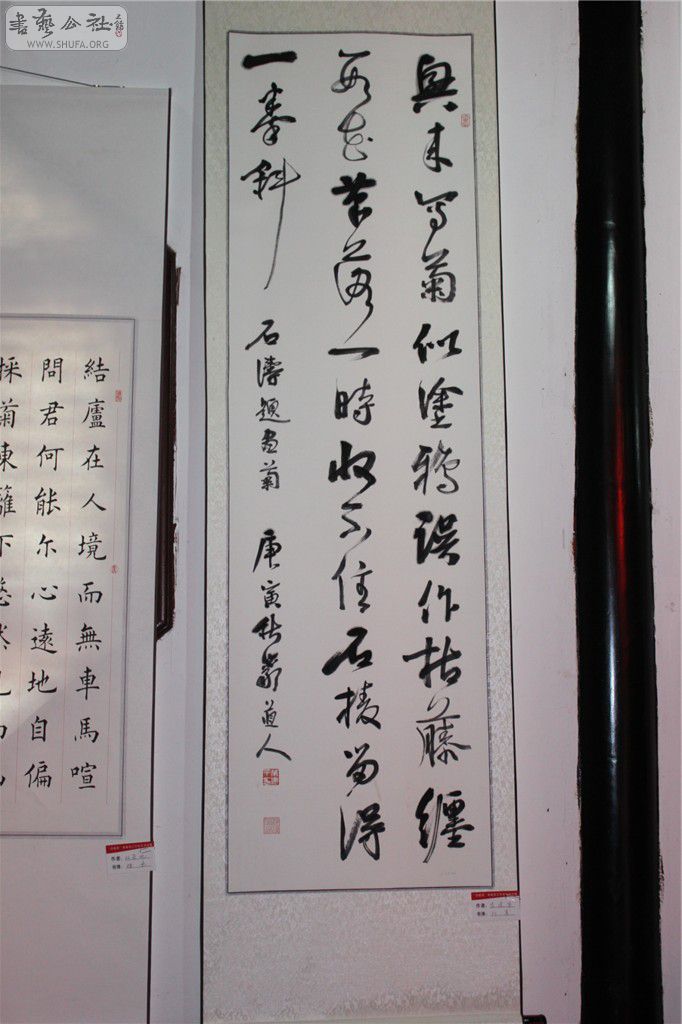 書藝公社
WWW.SHUFA.ORG
興来写菊似塗鴉誤作枯藤纏
數花筆落一時收不住石棱留得
一拳斜
石濤題畫菊 庚寅秋 道人
結廬在人境而無車馬喧
問君何能尔心遠地自偏
採菊東籬下悠然見
作者：
作者：